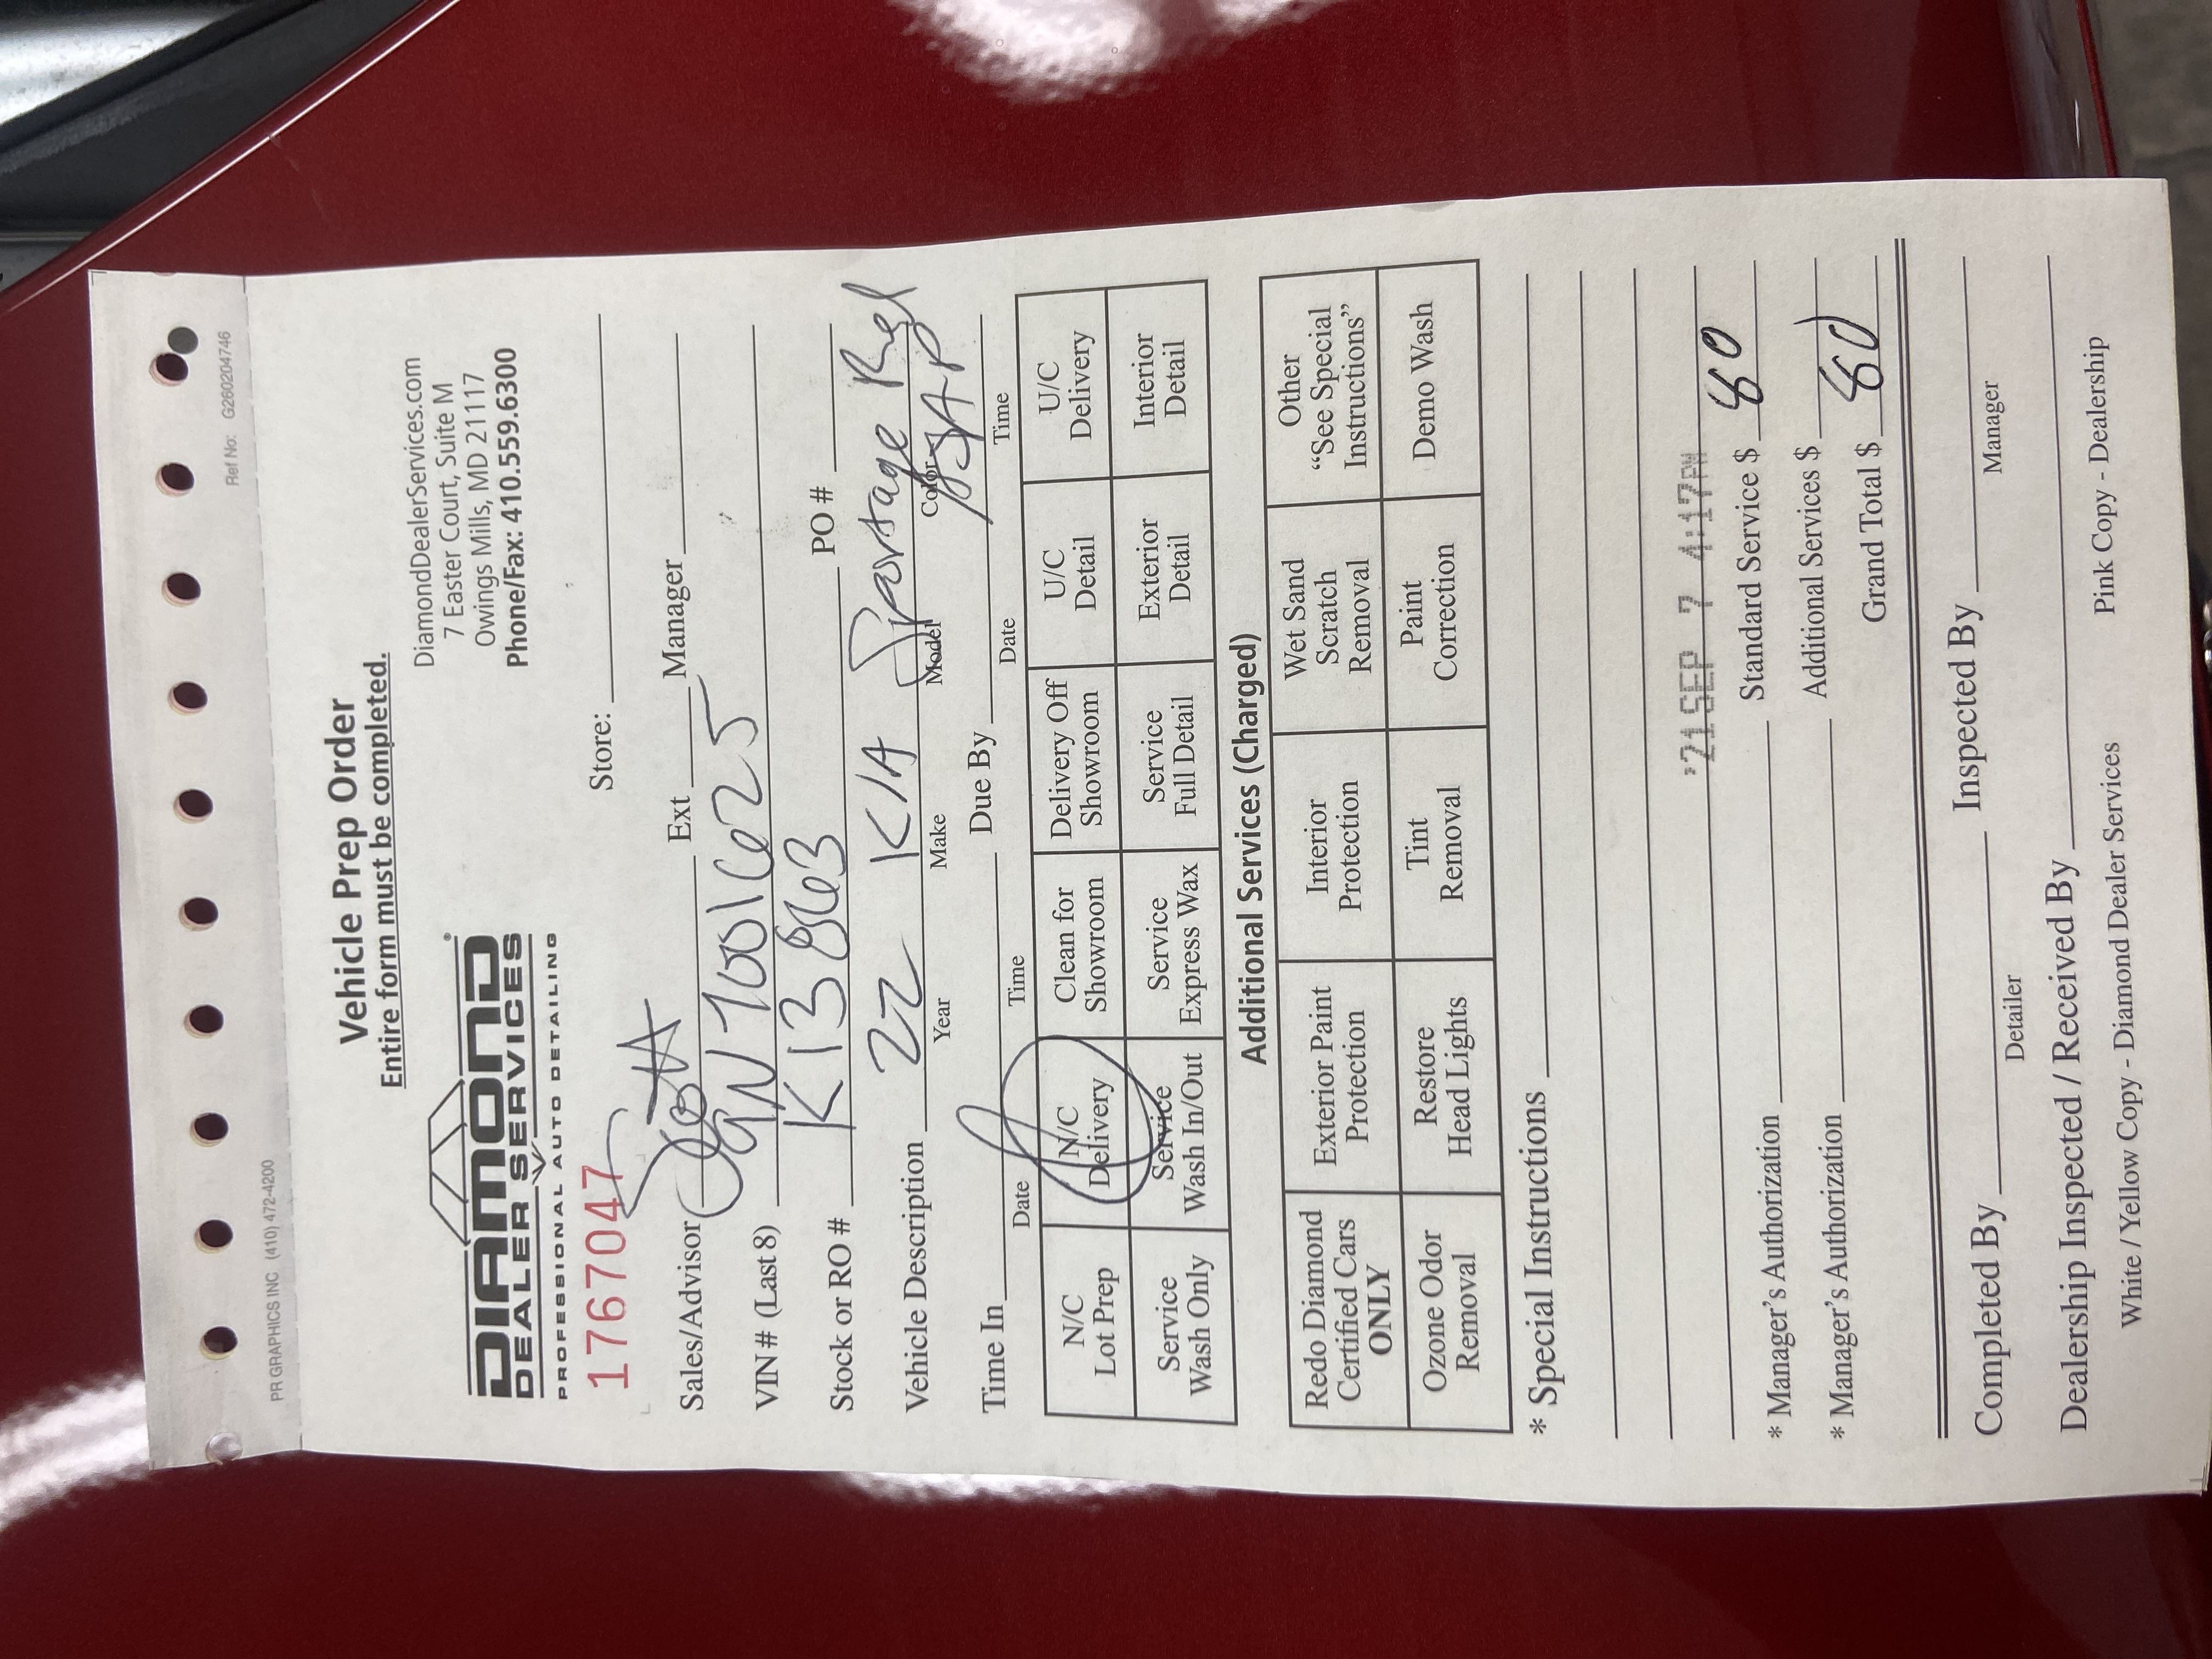 PR GRAPHICS INC (410) 472-4200 Ref No: G260204746
Vehicle Prep Order
Entire form must be completed.
DIAMOND
DEALER SERVICES
PROFESSIONAL AUTO DETAILING
DiamondDealerServices.com
7 Easter Court, Suite M
Owings Mills, MD 21117
Phone/Fax: 410.559.6300
1767047
Store:
Sales/Advisor Scott Ext Manager
VIN # (Last 8) 7001625
Stock or RO # K13863 PO #
Vehicle Description 22 KIA Sportage Red
Year Make Model Color
Time In Due By ASAP
Date Time Date Time
N/C Lot Prep N/C Delivery Clean for Showroom Delivery Off Showroom U/C Detail U/C Delivery
Service Wash Only Service Wash In/Out Service Express Wax Service Full Detail Exterior Detail Interior Detail
Additional Services (Charged)
Redo Diamond Certified Cars ONLY Exterior Paint Protection Interior Protection Wet Sand Scratch Removal Other "See Special Instructions"
Ozone Odor Removal Restore Head Lights Tint Removal Paint Correction Demo Wash
* Special Instructions
'21SEP 7 4:17PM
* Manager's Authorization Standard Service $ 80
* Manager's Authorization Additional Services $
Grand Total $ 80
Completed By Inspected By
Detailer Manager
Dealership Inspected / Received By
White / Yellow Copy - Diamond Dealer Services Pink Copy - Dealership